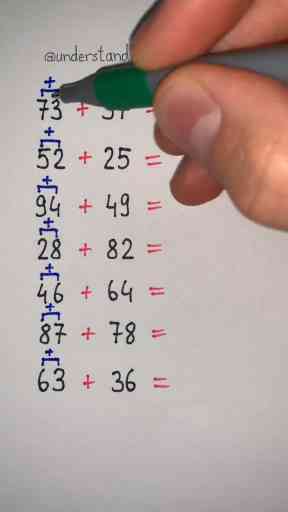 @understand
+
73 + =
+
52 + 25 =
+
94 + 49 =
+
28 + 82 =
+
46 + 64 =
+
87 + 78 =
+
63 + 36 =